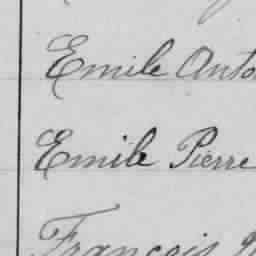 Emile Anto
Emile Pierre
François